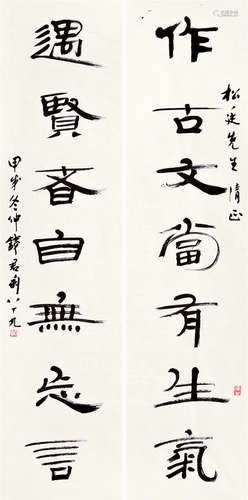 松廷先生清正
作古文當有生氣
遇賢者自無忘言
甲戌冬仲錢君匋八十九